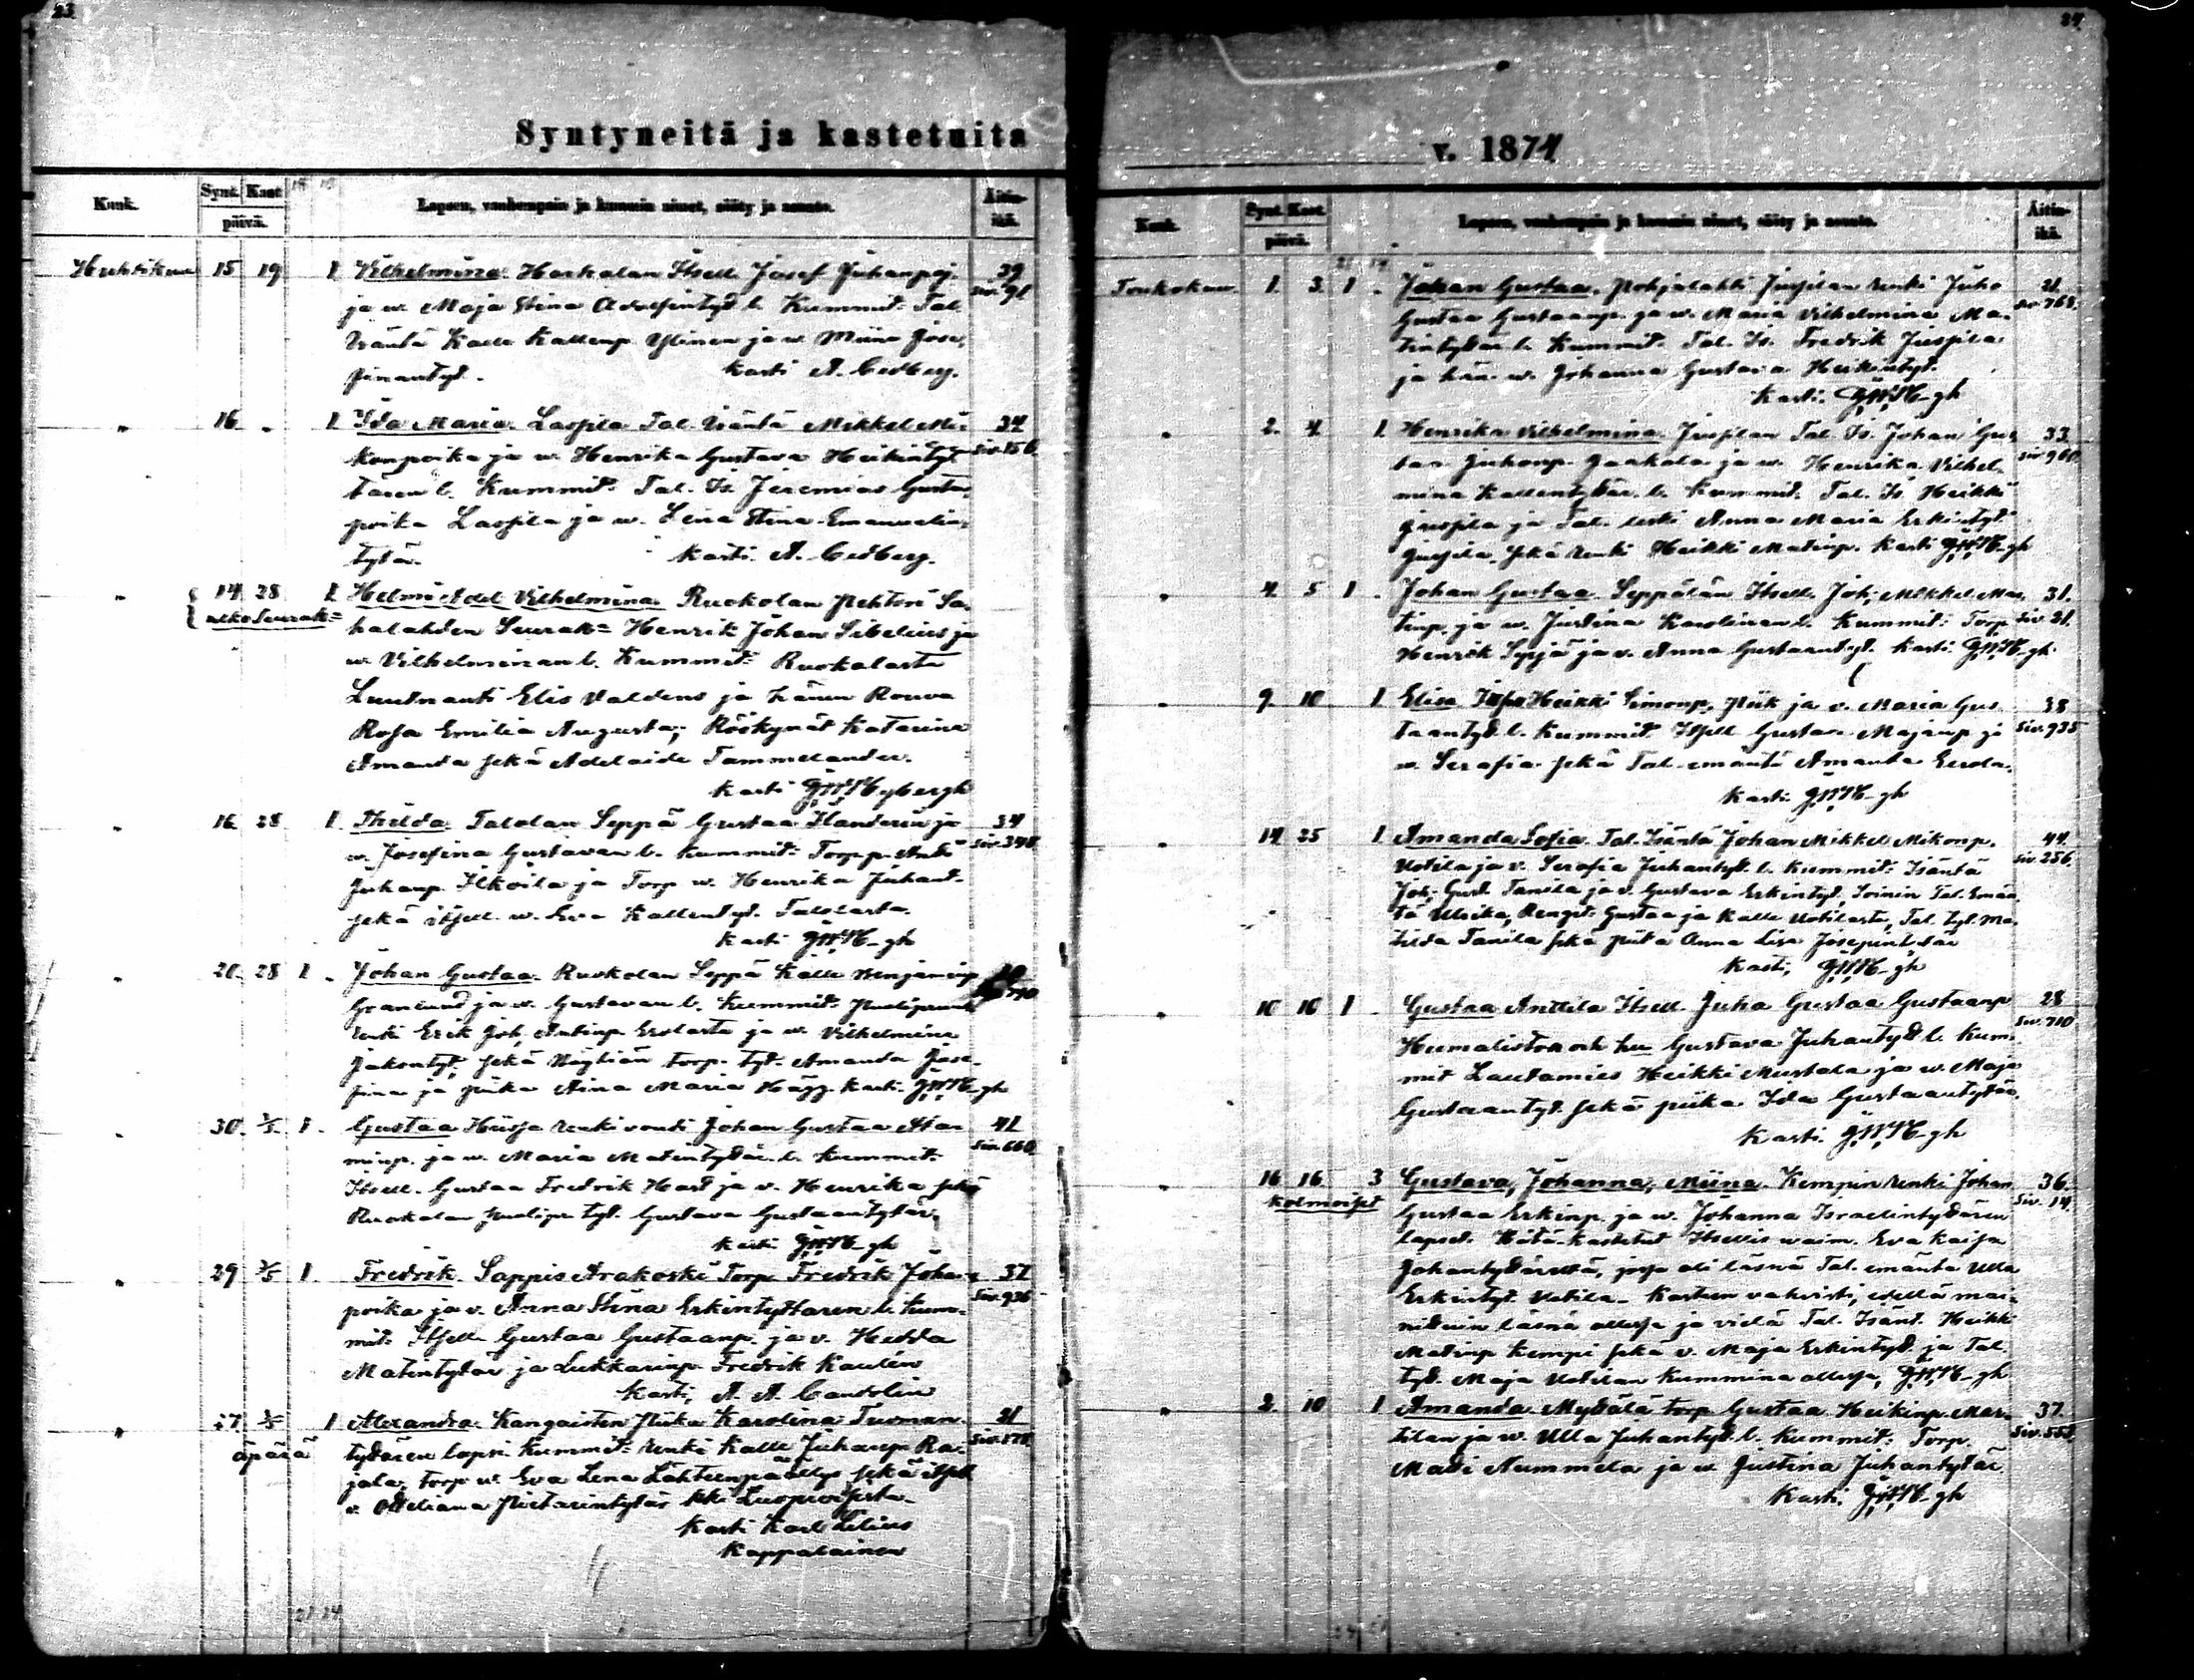 23
Syntyneitä ja kastetuita
Kuuk. Synt. Kast. Lapsen, vanhempain ja kummin nimet, sääty ja asunto. Äitin-
päivä. ikä.
Huhtikuu 15 19 1 Vilhelmina Itsell. Josef Juhanpoj. 39
ja w. Maja Stina l. Kummit: Tal. siv. 91
Isäntä Kalle Kallenp. Ylinen ja w. Miina Jose-
finantyt. Kasti A. Cedberg.
" 16 " 1 Ida Maria. Laspila Tal. Isäntä Mikkel Mi- 34
konpoika ja w. Henrika Gustava Heikintyt- siv. 156
tären l. Kummit: Tal. Is. Jeremias Gusta-
poika Laspila ja w. Leina Stina Emanuelin-
tytär. Kasti A. Cedberg.
" 14 28 1 Helmi Adel Vilhelmina Ruokolan Pehtori Sa-
ulko Seurak= halahden Seurak= Henrik Johan Sibelius ja
w. Vilhelminan l. Kummit: Ruokolasta
Luutnanti Elis Valdens ja hänen Rouva
Rosa Emilia Augusta; Röökynät Katarina
Amanda sekä Adelaide Tammelander.
Kasti Nybergh
" 16 28 1 Hilda Talolan Seppä Gustaa ja 34
w. Josefina Gustavan l. Kummit: Torp.p. Anti siv. 348
Juhanp. Ilkoila ja Torp. w. Henrika Juhant.
sekä itsell. w. Eva Kallentyt. Talolasta.
Kasti gh
" 20 28 1 Johan Gustaa. Ruokolan Seppä Kalle Benjaminp.
Granlund ja w. Gustavan l. Kummit:
renki Erik Joh. Antinp. Erolasta ja w. Vilhelmina
Jakontyt. sekä torp. tyt. Amanda Jose-
fina ja piika Aina Maria Hägg. Kasti gh
" 30 3/5 1 Gustaa renki vouti Johan Gustaa 41
ja w. Maria Matintytär. l. Kummit: siv. 660
Itsell. Gustaa Fredrik Hast ja v. Henrika sekä
Ruokolan tyt. Gustava Gustaantytär.
Kasti gh
" 29 3/5 1 Fredrik Sappis Arakoski Torp. Fredrik Johan- 37
poika ja v. Anna Stina Erkintyttären l. Kum- siv. 936
mit: Itsell. Gustaa Gustaanp. ja v. Hedda
Matintytär ja Lukkarinp. Fredrik Kaulén
Kasti, A. A. Candolin
" 27 3/5 1 Alexandra Kangaisten Piika Karolina Tuoman- 21
äpärä tyttären lapsi Kummit: renki Kalle Juhanp. Ra- siv. 878
jala, torp. w. Eva Lena Lähteenpää sekä itsell.
v. Otteliana Pietarintytär
Kasti Karl Lilius
Kappalainen
24
v. 1874
Kuuk. Synt. Kast. Lapsen, vanhempain ja kummin nimet, sääty ja asunto. Äitin-
päivä. ikä.
Toukokuu 1. 3. 1 Johan Gustaa. Pohjalahti Juspilan renki Juho 21.
Gustaa Gustaanp. ja w. Maria Vilhelmina Ma- siv 768.
tintytär l. Kummit: Tal. Is. Fredrik Juspila
ja hän. w. Johanna Gustava Heikintyt.
Kasti. gh
" 2. 4. 1 Henrika Vilhelmina. Juspilan Tal. Is. Johan Gus- 33
taa Juhonp. Jaakola ja w. Henrika Vilhel- siv 960
mina Kallentytär. l. Kummit: Tal. Is. Heikki
Juspila ja Tal. leski Anna Maria Erkintyt.
Juspila, sekä renki Heikki Matinp. Kasti gh
" 4. 5 1 Johan Gustaa. Seppälän Itsell. Joh. Mikkel Ma- 31.
tinp. ja w. Justina Karolinan l. Kummit: Torp. siv. 21.
Henrik Syrjä ja v. Anna Gustaantyt. Kasti gh
" 9 10 1 Elisa Heikki Simonp. Piik ja v. Maria Gus- 38
taantyt. l. Kummit: Itsell Gustav Majanp. ja siv. 935
w. Serafia sekä Tal. emäntä Amanta Eerola.
Kasti gh
" 14 25 1 Amanda Sofia. Tal. Isäntä Johan Mikkel Mikonp. 44.
Uotila ja v. Serafia Juhantyt. l. Kummit: Isäntä siv. 256
Joh. Gust. Tanila ja v. Gustava Erkintyt, Tal. Emän-
tä Ulrika, Rengit: Gustaa ja Kalle Uotilasta, Tal. tyt. Ma-
tilda Tanila sekä Piika Anna Lisa
Kasti, gh
" 10 16 1 Gustaa Anttila Itsell. Juha Gustaa Gustaanp. 28
Gustava Juhantyt. l. Kum- siv. 710
mit Lautamies Heikki Mustala ja w. Maja
Gustaantyt. sekä piika Ida Gustaantytär.
Kasti gh
" 16 16 3 Gustava, Johanna, Miina. Kempin renki Johan 36.
kolmoiset Gustaa Erkinp. ja w. Johanna Israelintyttären siv. 14.
lapset. Hätä-kastetut Itsellis waim. Eva Kaisa
Johantyttäreltä, jossa oli läsnä Tal. emäntä Ulla
Erkintyt. Uotila. Kasteen vahvisti, edellä mai-
nituin läsnä ollessa ja vielä Tal. Isänt. Heikki
Matinp. Kempi sekä v. Maja Erkintyt. ja Tal.
tyt. Maja Uotilan Kummina ollessa, gh
" 2. 10 1 Amanda Mydälä torp. Gustaa Heikinp. Mar- 37.
tilan ja w. Ulla Juhantyt. l. Kummit: Torp. siv. 558
Matti Nummela ja w. Justina Juhantytär.
Kasti gh